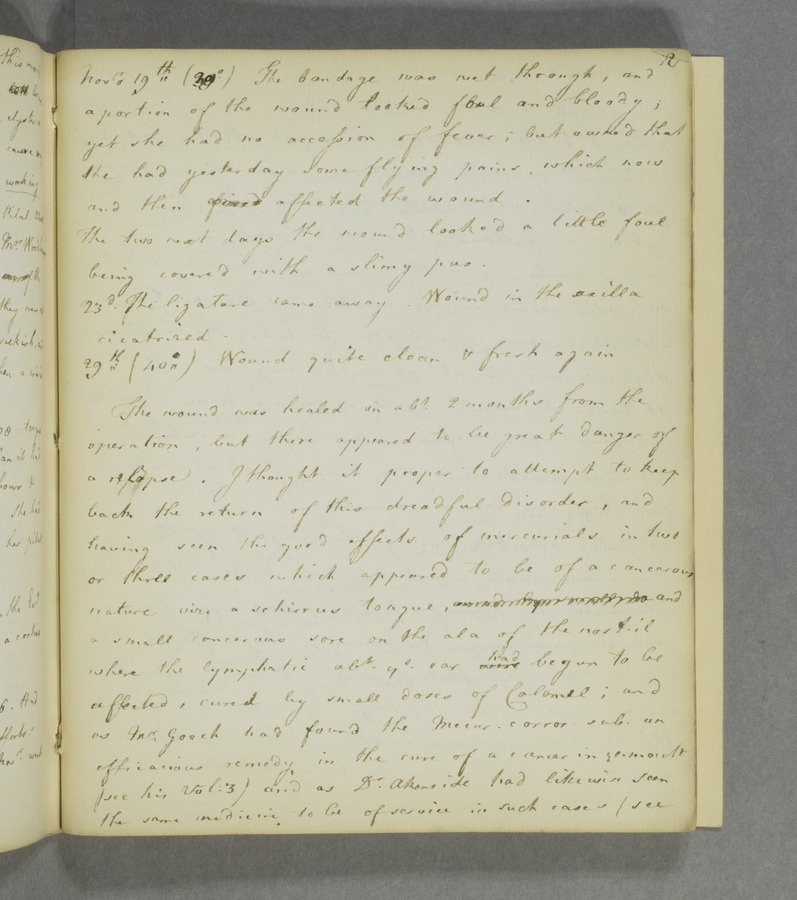 Nov.r 19th (30°) The bandage was wet through, and
a portion of the wound looked foul and bloody;
yet she had no accession of fever; but owned that
she had yesterday some flying pains, which now
and then affected the wound.
The two next days the wound looked a little foul
being covered with a slimy pus.
23d. The ligature came away. Wound in the axilla
cicatrized.
29th (40th) Wound quite clean & fresh again
The wound was healed in abt. 2 months from the
operation, but there appeared to be great danger of
a relapse. I thought it proper to attempt to keep
back the return of this dreadful disorder, and
having seen the good effects of mercurials in two
or three cases which appeared to be of a cancerous
nature viz. a schirrus tongue, and
a small cancerous sore on the ala of the nostril
where the lymphatic abt. ye. ear had begun to be
affected, cured by small doses of Calomel; and
as Mr. Gooch had found the Mercur. corros. sub. an
efficacious remedy in the cure of a cancer in ye mouth
(see his Vol: 3) and as Dr. Akenside had likewise seen
the same medicine to be of service in such cases (see